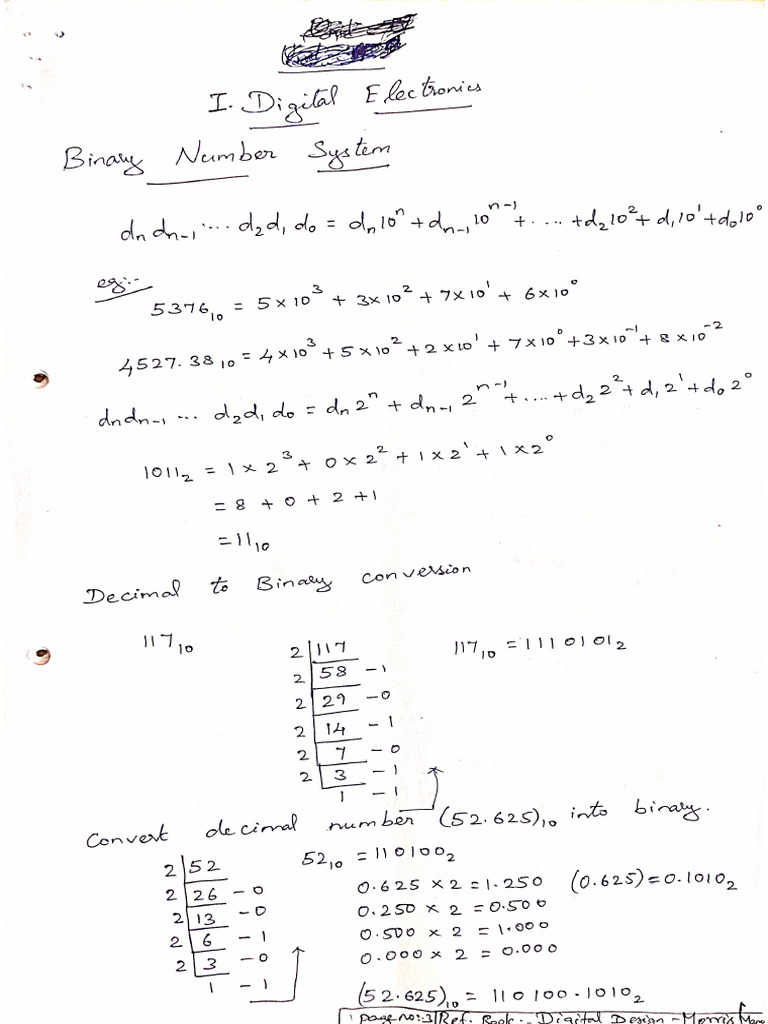 I. Digital Electronics
Binary Number System
dₙ dₙ₋₁ .... d₂ d₁ d₀ = dₙ10ⁿ + dₙ₋₁ 10ⁿ⁻¹ + .... + d₂10² + d₁10¹ + d₀10⁰
eg:-
5376₁₀ = 5×10³ + 3×10² + 7×10¹ + 6×10⁰
4527.38₁₀ = 4×10³ + 5×10² + 2×10¹ + 7×10⁰ + 3×10⁻¹ + 8×10⁻²
dₙdₙ₋₁ ... d₂d₁d₀ = dₙ2ⁿ + dₙ₋₁ 2ⁿ⁻¹ + .... + d₂2² + d₁2¹ + d₀2⁰
1011₂ = 1×2³ + 0×2² + 1×2¹ + 1×2⁰
= 8 + 0 + 2 + 1
= 11₁₀
Decimal to Binary conversion
117₁₀
2 | 117
2 | 58 - 1
2 | 29 - 0
2 | 14 - 1
2 | 7 - 0
2 | 3 - 1
1 - 1
117₁₀ = 1110101₂
Convert decimal number (52.625)₁₀ into binary.
2 | 52
2 | 26 - 0
2 | 13 - 0
2 | 6 - 1
2 | 3 - 0
1 - 1
52₁₀ = 110100₂
0.625 × 2 = 1.250 (0.625) = 0.1010₂
0.250 × 2 = 0.500
0.500 × 2 = 1.000
0.000 × 2 = 0.000
(52.625)₁₀ = 110100.1010₂
page no:-3 Ref. Book:- Digital Design - Morris Mano